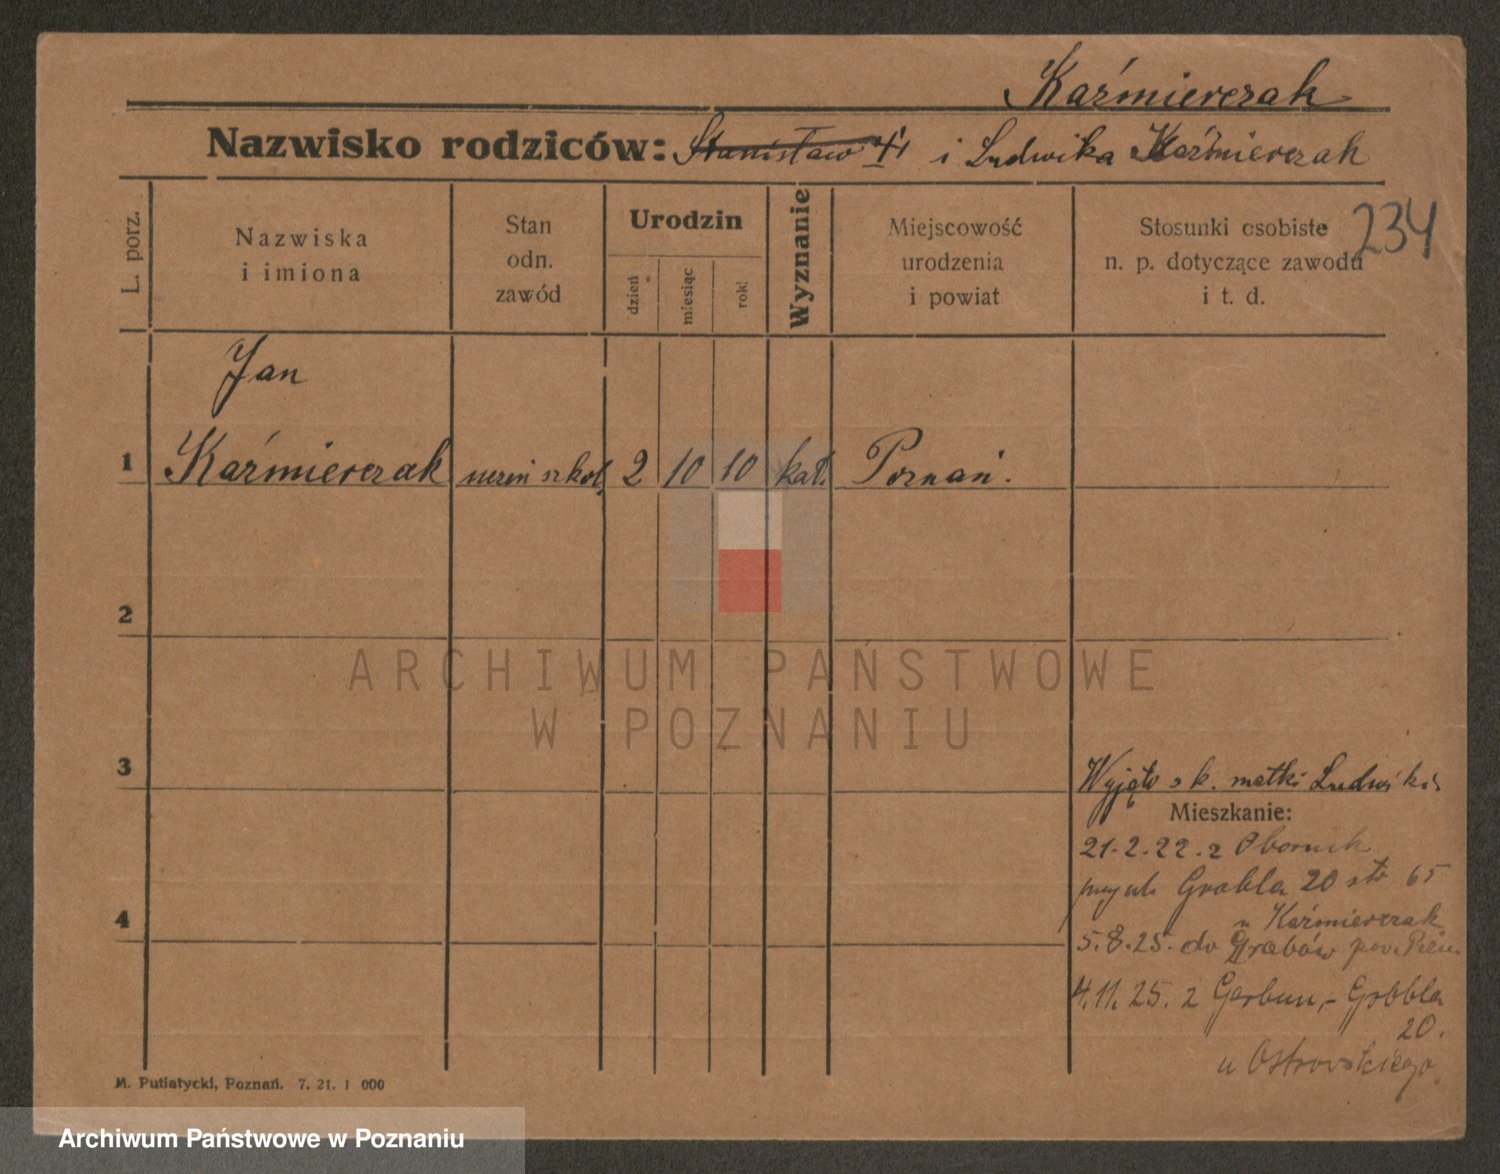 Kaźmierczak
Nazwisko rodziców: Stanisław i Ludwika Kaźmierczak
234
L. porz.
Nazwiska
i imiona
Stan
odn.
zawód
Urodzin
dzień
miesiąc
rok
Wyznanie
Miejscowość
urodzenia
i powiat
Stosunki osobiste
n. p. dotyczące zawodu
i t. d.
Jan
1 Kaźmierczak uczeń szkol. 2 10 10 kat. Poznań.
2
ARCHIWUM PAŃSTWOWE
W POZNANIU
3
Wyjęto z k. matki Ludwiki
Mieszkanie:
21.2.22. z Obornik
Grobla 20 65
4
u Kaźmierczak
5.8.25. do Grabów pow.
4.11.25. z Grobla
20.
u Ostrowskiego.
M. Putiatycki, Poznań. 7. 21. 1 000
Archiwum Państwowe w Poznaniu